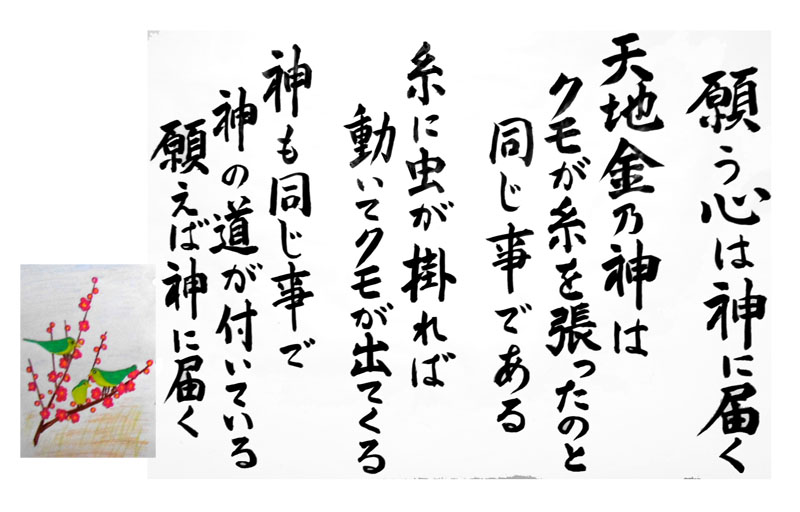 願う心は神に届く
天地金乃神は
クモが糸を張ったのと
同じ事である
糸に虫が掛れば
動いてクモが出てくる
神も同じ事で
神の道が付いている
願えば神に届く